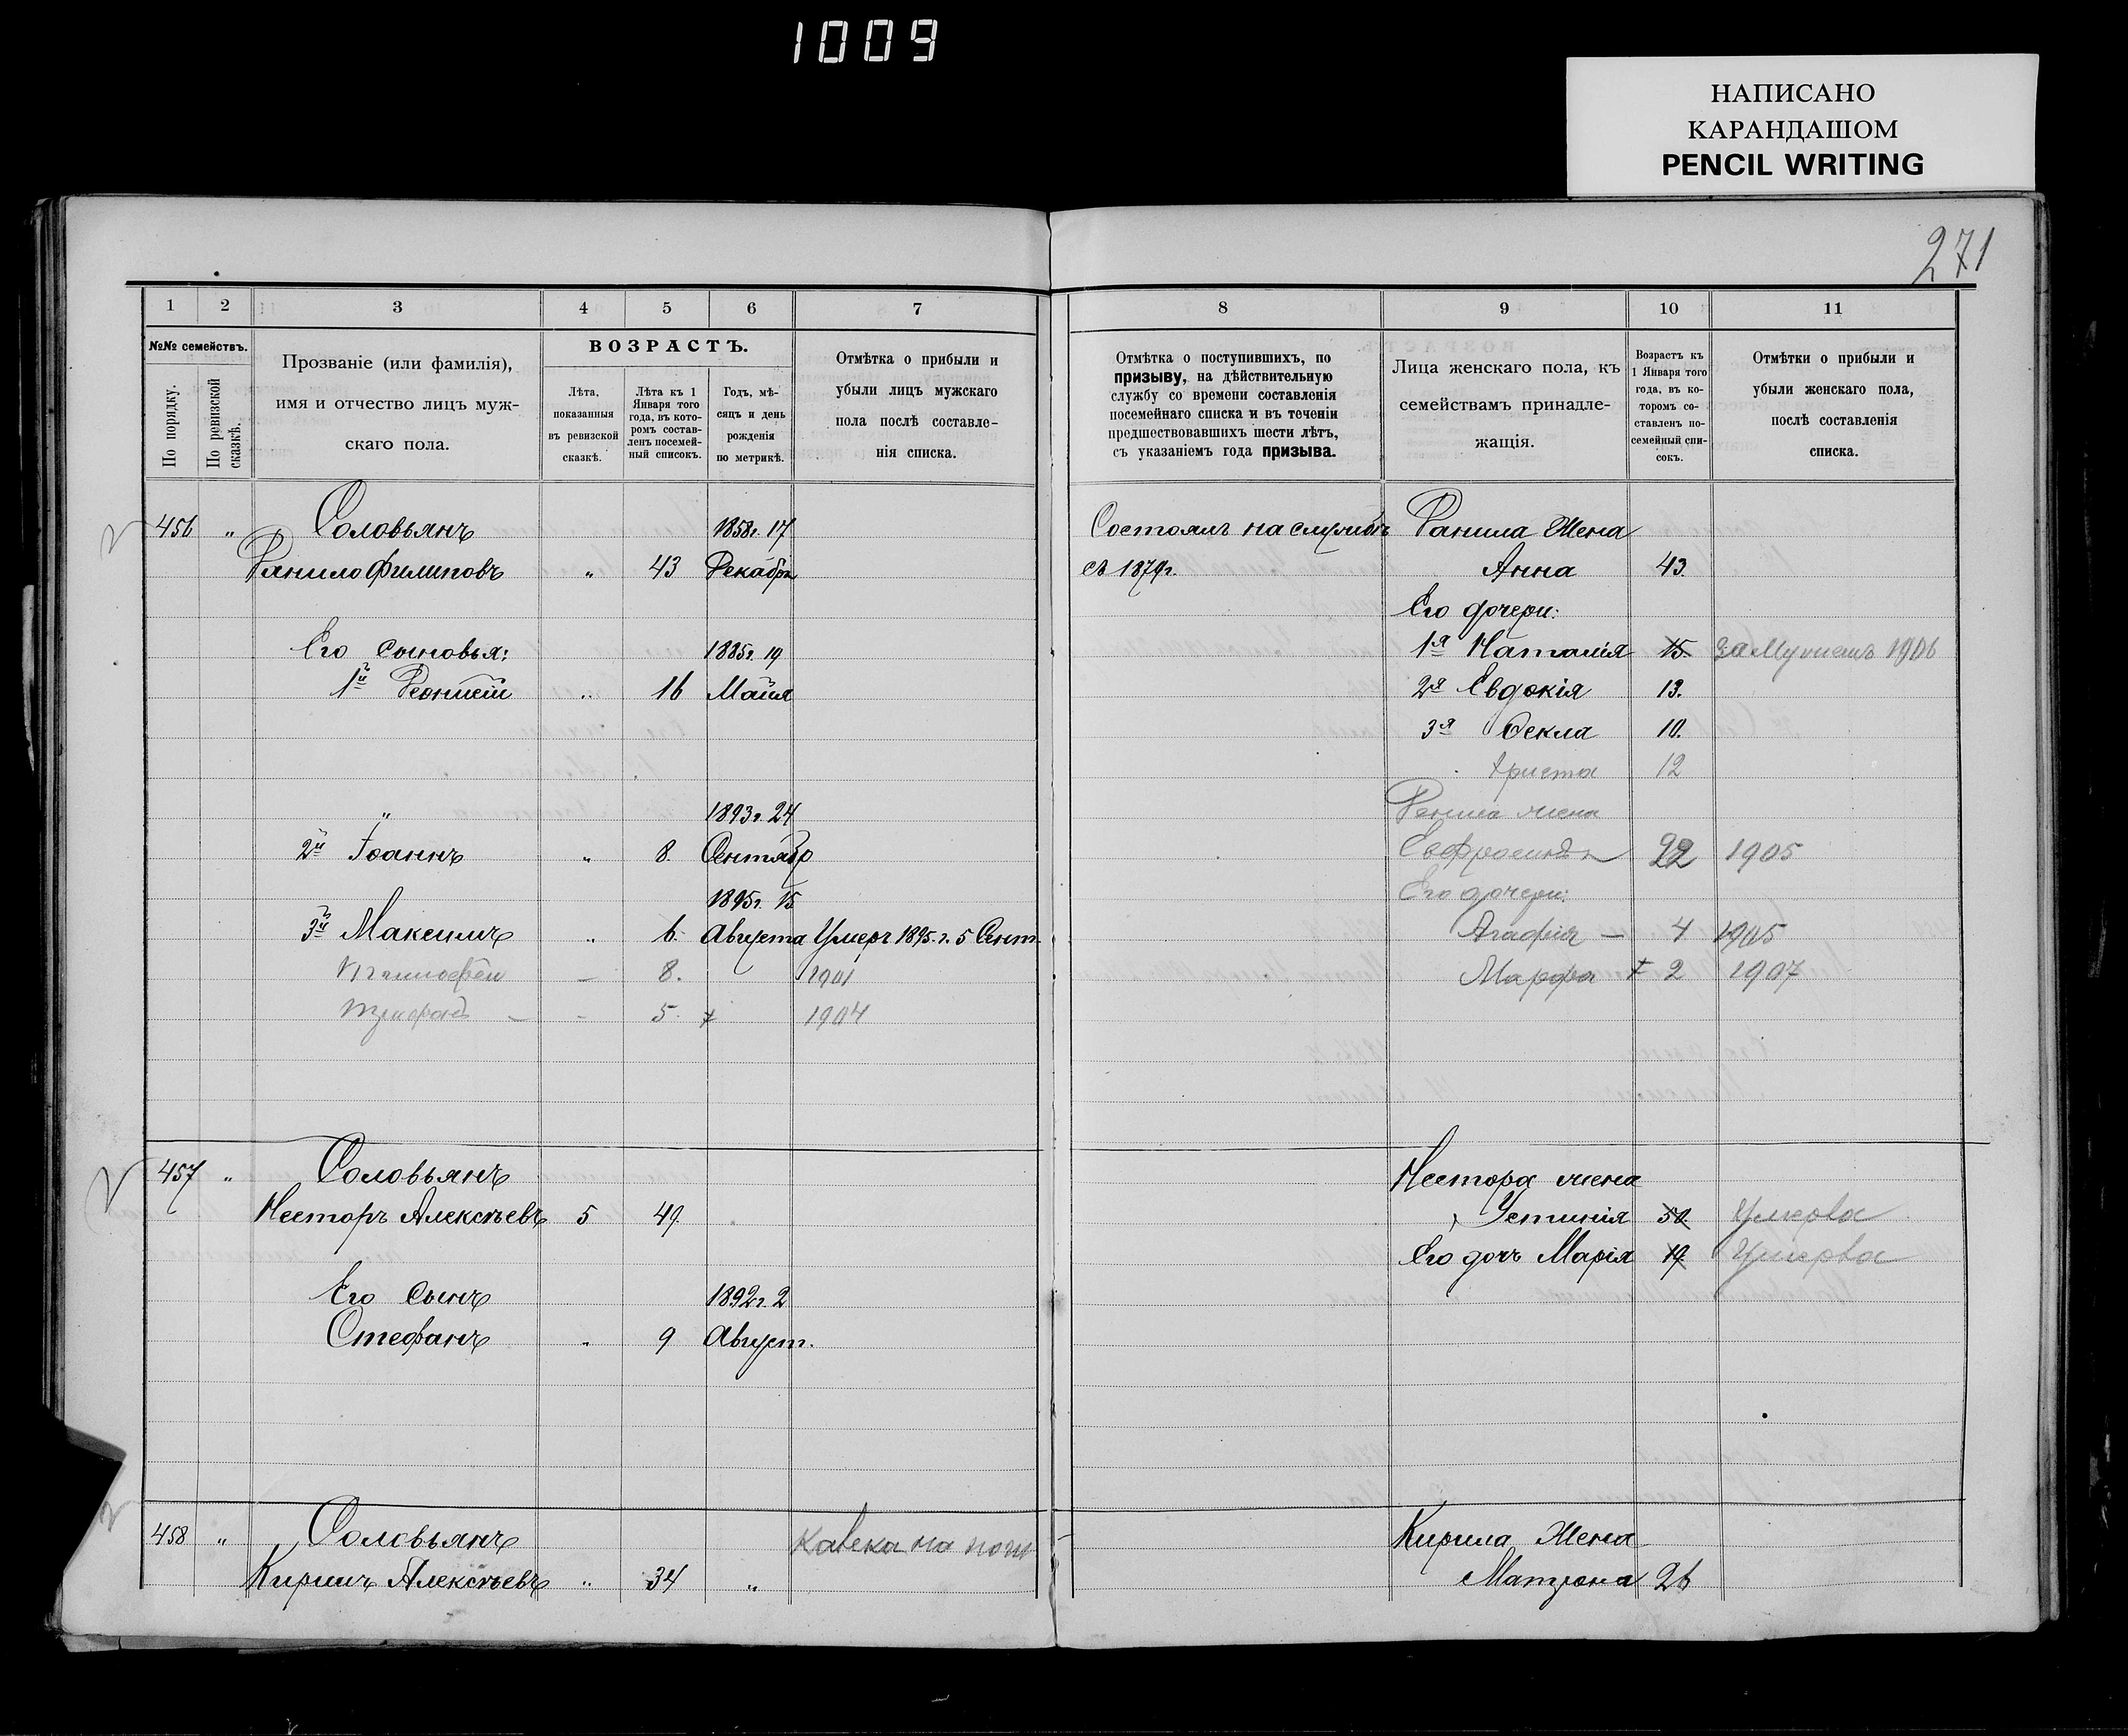 1009
НАПИСАНО
КАРАНДАШОМ
PENCIL WRITING
271
1 2 3 4 5 6 7
№№ семействъ.
По порядку.
По ревизской сказкѣ.
Прозваніе (или фамилія),
имя и отчество лицъ муж-
скаго пола.
ВОЗРАСТЪ.
Лѣта,
показанныя
въ ревизской
сказкѣ.
Лѣта къ 1
Января того
года, въ кото-
ромъ состав-
ленъ посемей-
ный списокъ.
Годъ, мѣ-
сяцъ и день
рожденія
по метрикѣ.
Отмѣтка о прибыли и
убыли лицъ мужскаго
пола послѣ составле-
нія списка.
456 " Соловьянъ 1858г. 17
Данило Филиповъ " 43 Декабря
Его сыновья: 1885г. 19
1й " 16 Маія
" 1893г. 24
2й Іоаннъ " 8. Сентябр
1895г. 15
3й Максимъ " 6. Августа Умеръ 1895.г. 5 Сент.
Тимофей — 8. 1901
Трифонъ — - 5. 1904
457 " Соловьянъ
Несторъ Алексѣевъ 5 49.
Его Сынъ 1892г. 2
Стефанъ " 9 Август.
458 " Соловьянъ Калека на ноги
Кирилъ Алексѣевъ " 34 "
8 9 10 11
Отмѣтка о поступившихъ, по
призыву, на дѣйствительную
службу со времени составленія
посемейнаго списка и въ теченіи
предшествовавшихъ шести лѣтъ,
съ указаніемъ года призыва.
Лица женскаго пола, къ
семействамъ принадле-
жащія.
Возрастъ къ
1 Января того
года, въ ко-
торомъ со-
ставленъ по-
семейный спи-
сокъ.
Отмѣтки о прибыли и
убыли женскаго пола,
послѣ составленія
списка.
Состоялъ на службѣ Данила Жена
съ 1879г. Анна 43.
Его дочери:
1я Наталія 15. замужемъ 1906
2я Евдокія 13.
3я Ѳекла 10.
Христа 12
жена
Евфросинія 22 1905
Его дочери:
Агафія — 4 1905
Марфа 2 1907
Нестора жена
Устинія 50. Умерла
Его дочь Марія 19. Умерла
Кирила Жена
Матрона 26